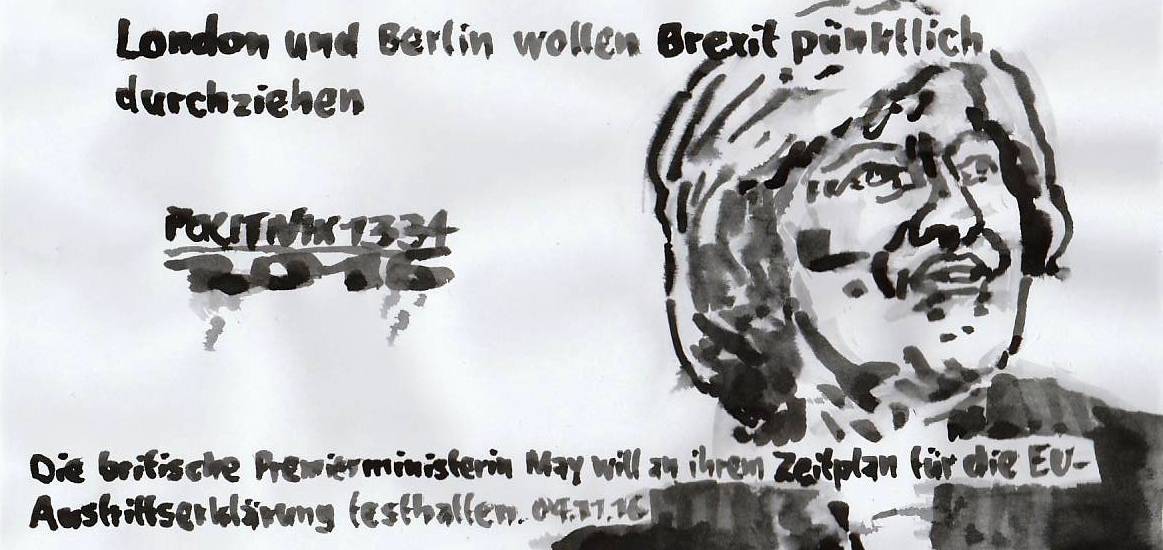 London und Berlin wollen Brexit pünktlich
durchziehen
POLITNIX 1334
2016
Die britische Premierministerin May will an ihrem Zeitplan für die EU-
Austrittserklärung festhalten. 04.11.16